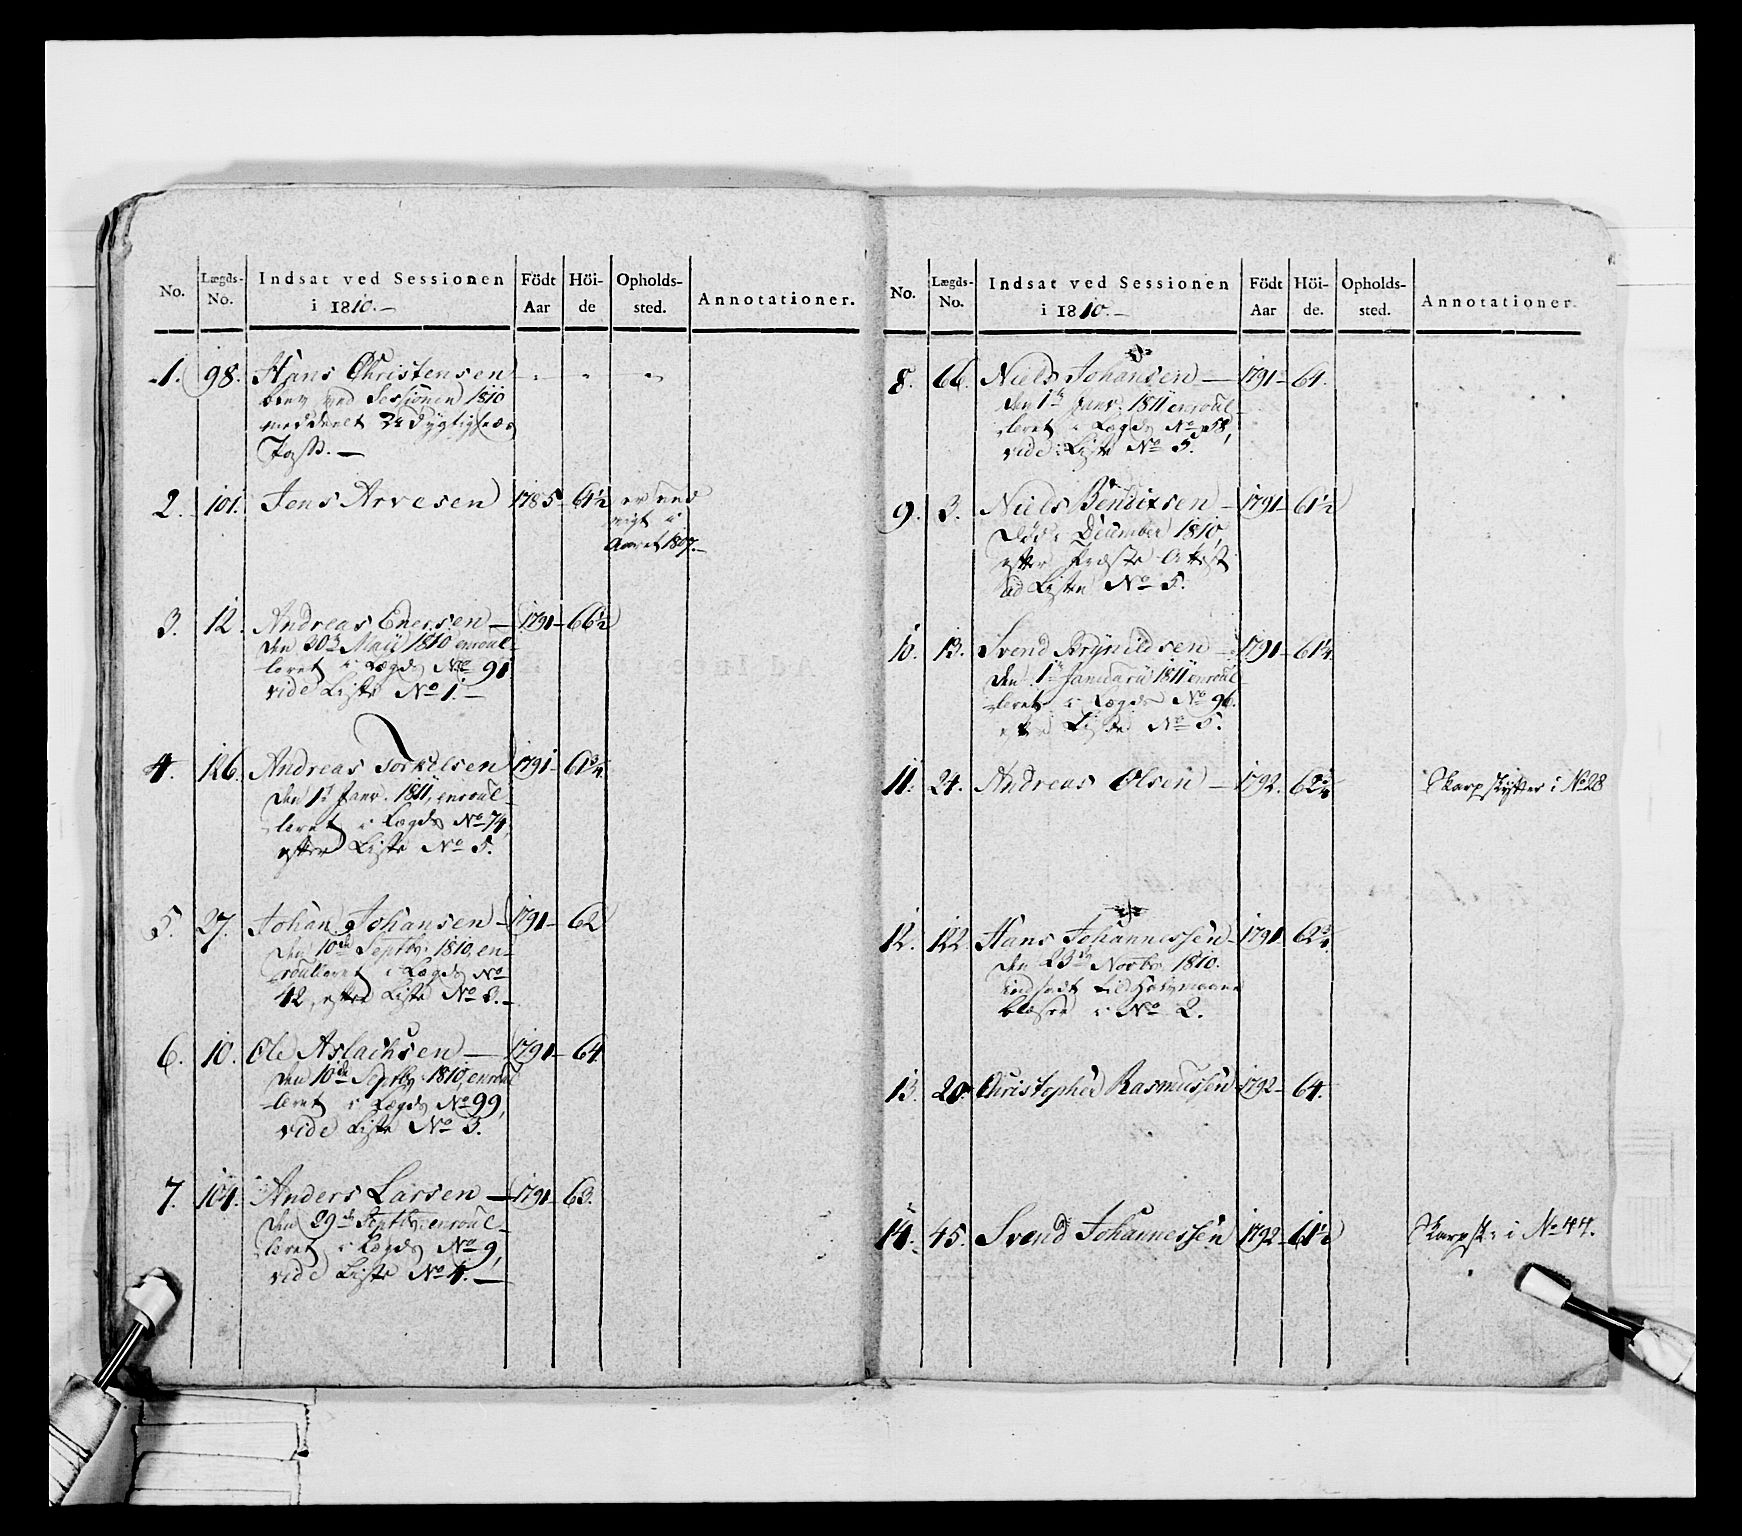 No. Lægds-No. Indsat ved Sessionen i 1810.- Födt Aar Höi-de Opholds-sted. Annotationer.
1. 98. Hans Christensen - . -
blev ved Sessionen 1810
meddeelt Udygtigheds
Pass. -
2. 101. Jens Arvesen 1785 64½ er und
vigt i
Aaret 1807.-
3. 12. Andreas Enersen - 1791 - 66½
den 30te Maii 1810 enroul-
leret i Lægds No 91
vide Liste No 1. -
4. 126. Andreas Torkelsen 1791 - 61¾
den 1te Janr. 1811, enroul-
leret i Lægds No 74,
efter Liste No 5.
5. 27. Johan Johansen - 1791 - 62
den 10de Septbr: 1810, en-
roulleret i Lægds No
42, efter Liste No 3. -
6. 10. Ole Aslachsen - 1791 - 64
den 10de Septbr: 1810, enroul
leret i Lægds No 99,
vide Liste No 3.
7. 104. Anders Larsen - 1791 - 63.
den 29de Septbr: enroul-
leret i Lægds No 9,
vide Liste No 4. -
No. Lægds-No. Indsat ved Sessionen i 1810.- Födt Aar Höi-de. Opholds-sted. Annotationer.
8. 66. Niels Johansen - 1791 - 64.
den 1te Janr. 1811 enroul-
leret i Lægds No 58,
vide Liste No 5.
9. 3. Niels Bendixsen - 1791 - 61½
Död i December 1810,
efter Præste Attest
ad Listen No 5.
10. 13. Svend Brynildsen - 1791 - 61¼
den 1te Januarii 1811 enroul-
leret i Lægds No 96.
Liste No 5.
11. 24. Andreas Olsen - 1792. 62¾ Skarpskytter i No 28
12. 122. Hans Johannessen - 1791 62¾
den 23de Novbr. 1810.
indsadt til
blæser i No 2.
13. 20. Christopher Rasmussen 1792 - 64.
14. 45. Svend Johannessen 1792 - 61½ Skarpsk: i No 44.